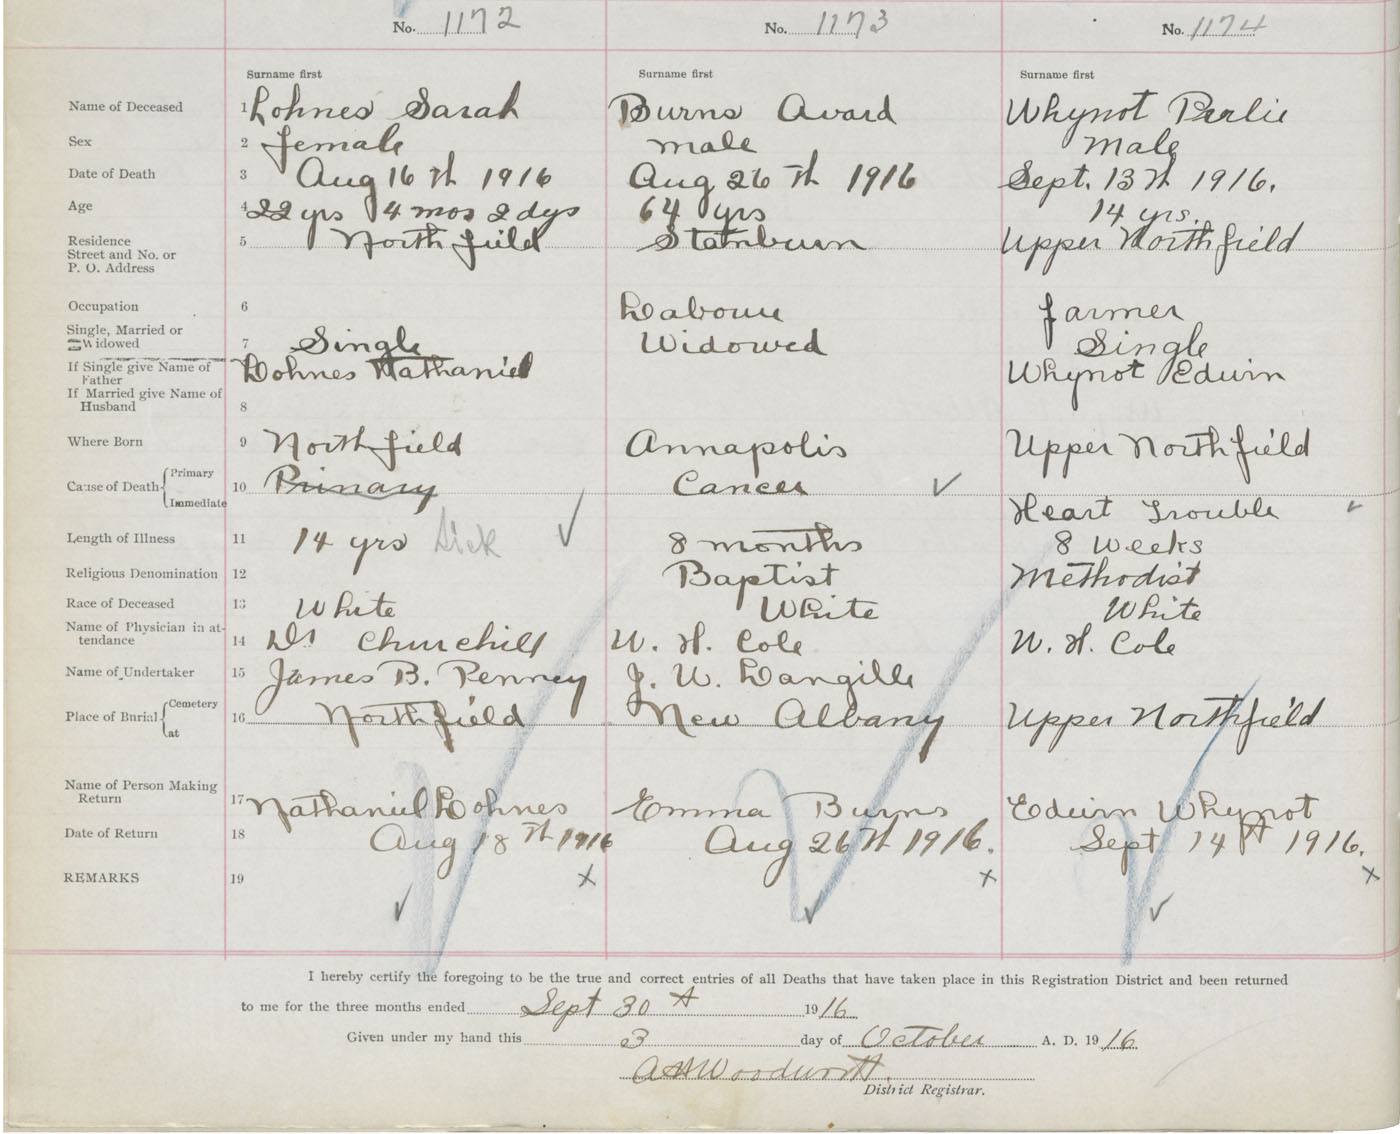 No. 1172 No. 1173 No. 1174
Surname first Surname first Surname first
Name of Deceased 1 Lohnes Sarah Burns Avard Whynot Perlie
Sex 2 female male Male
Date of Death 3 Aug 16th 1916 Aug 26th 1916 Sept. 13th 1916.
Age 4 22 yrs 4 mos 2 dys 64 yrs 14 yrs.
Residence 5 Northfield Stanburn Upper Northfield
Street and No. or
P. O. Address
Occupation 6 Labour farmer
Single, Married or
Widowed 7 Single Widowed Single
If Single give Name of Lohnes Nathaniel Whynot Edwin
Father
If Married give Name of
Husband 8
Where Born 9 Northfield Annapolis Upper Northfield
Cause of Death Primary 10 Primary Cancer
Immediate Heart Trouble
Length of Illness 11 14 yrs Sick 8 months 8 Weeks
Religious Denomination 12 Baptist Methodist
Race of Deceased 13 White White White
Name of Physician in at-
tendance 14 Dr Churchill W. H. Cole W. H. Cole
Name of Undertaker 15 James B. Penney J. W. Langille
Place of Burial Cemetery 16 Northfield New Albany Upper Northfield
at
Name of Person Making
Return 17 Nathaniel Lohnes Emma Burns Edwin Whynot
Date of Return 18 Aug 18th 1916 Aug 26th 1916. Sept 14th 1916.
REMARKS 19 x x x
I hereby certify the foregoing to be the true and correct entries of all Deaths that have taken place in this Registration District and been returned
to me for the three months ended Sept 30th 1916
Given under my hand this 3 day of October A. D. 1916
A H Woodworth.
District Registrar.